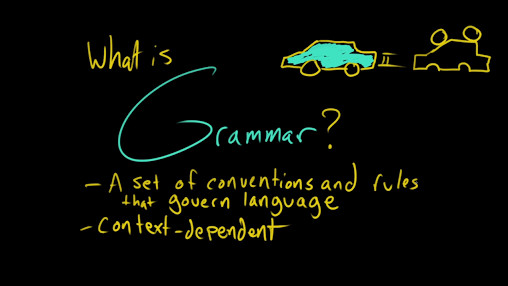 What is
Grammar?
- A set of conventions and rules
that govern language
- Context-dependent